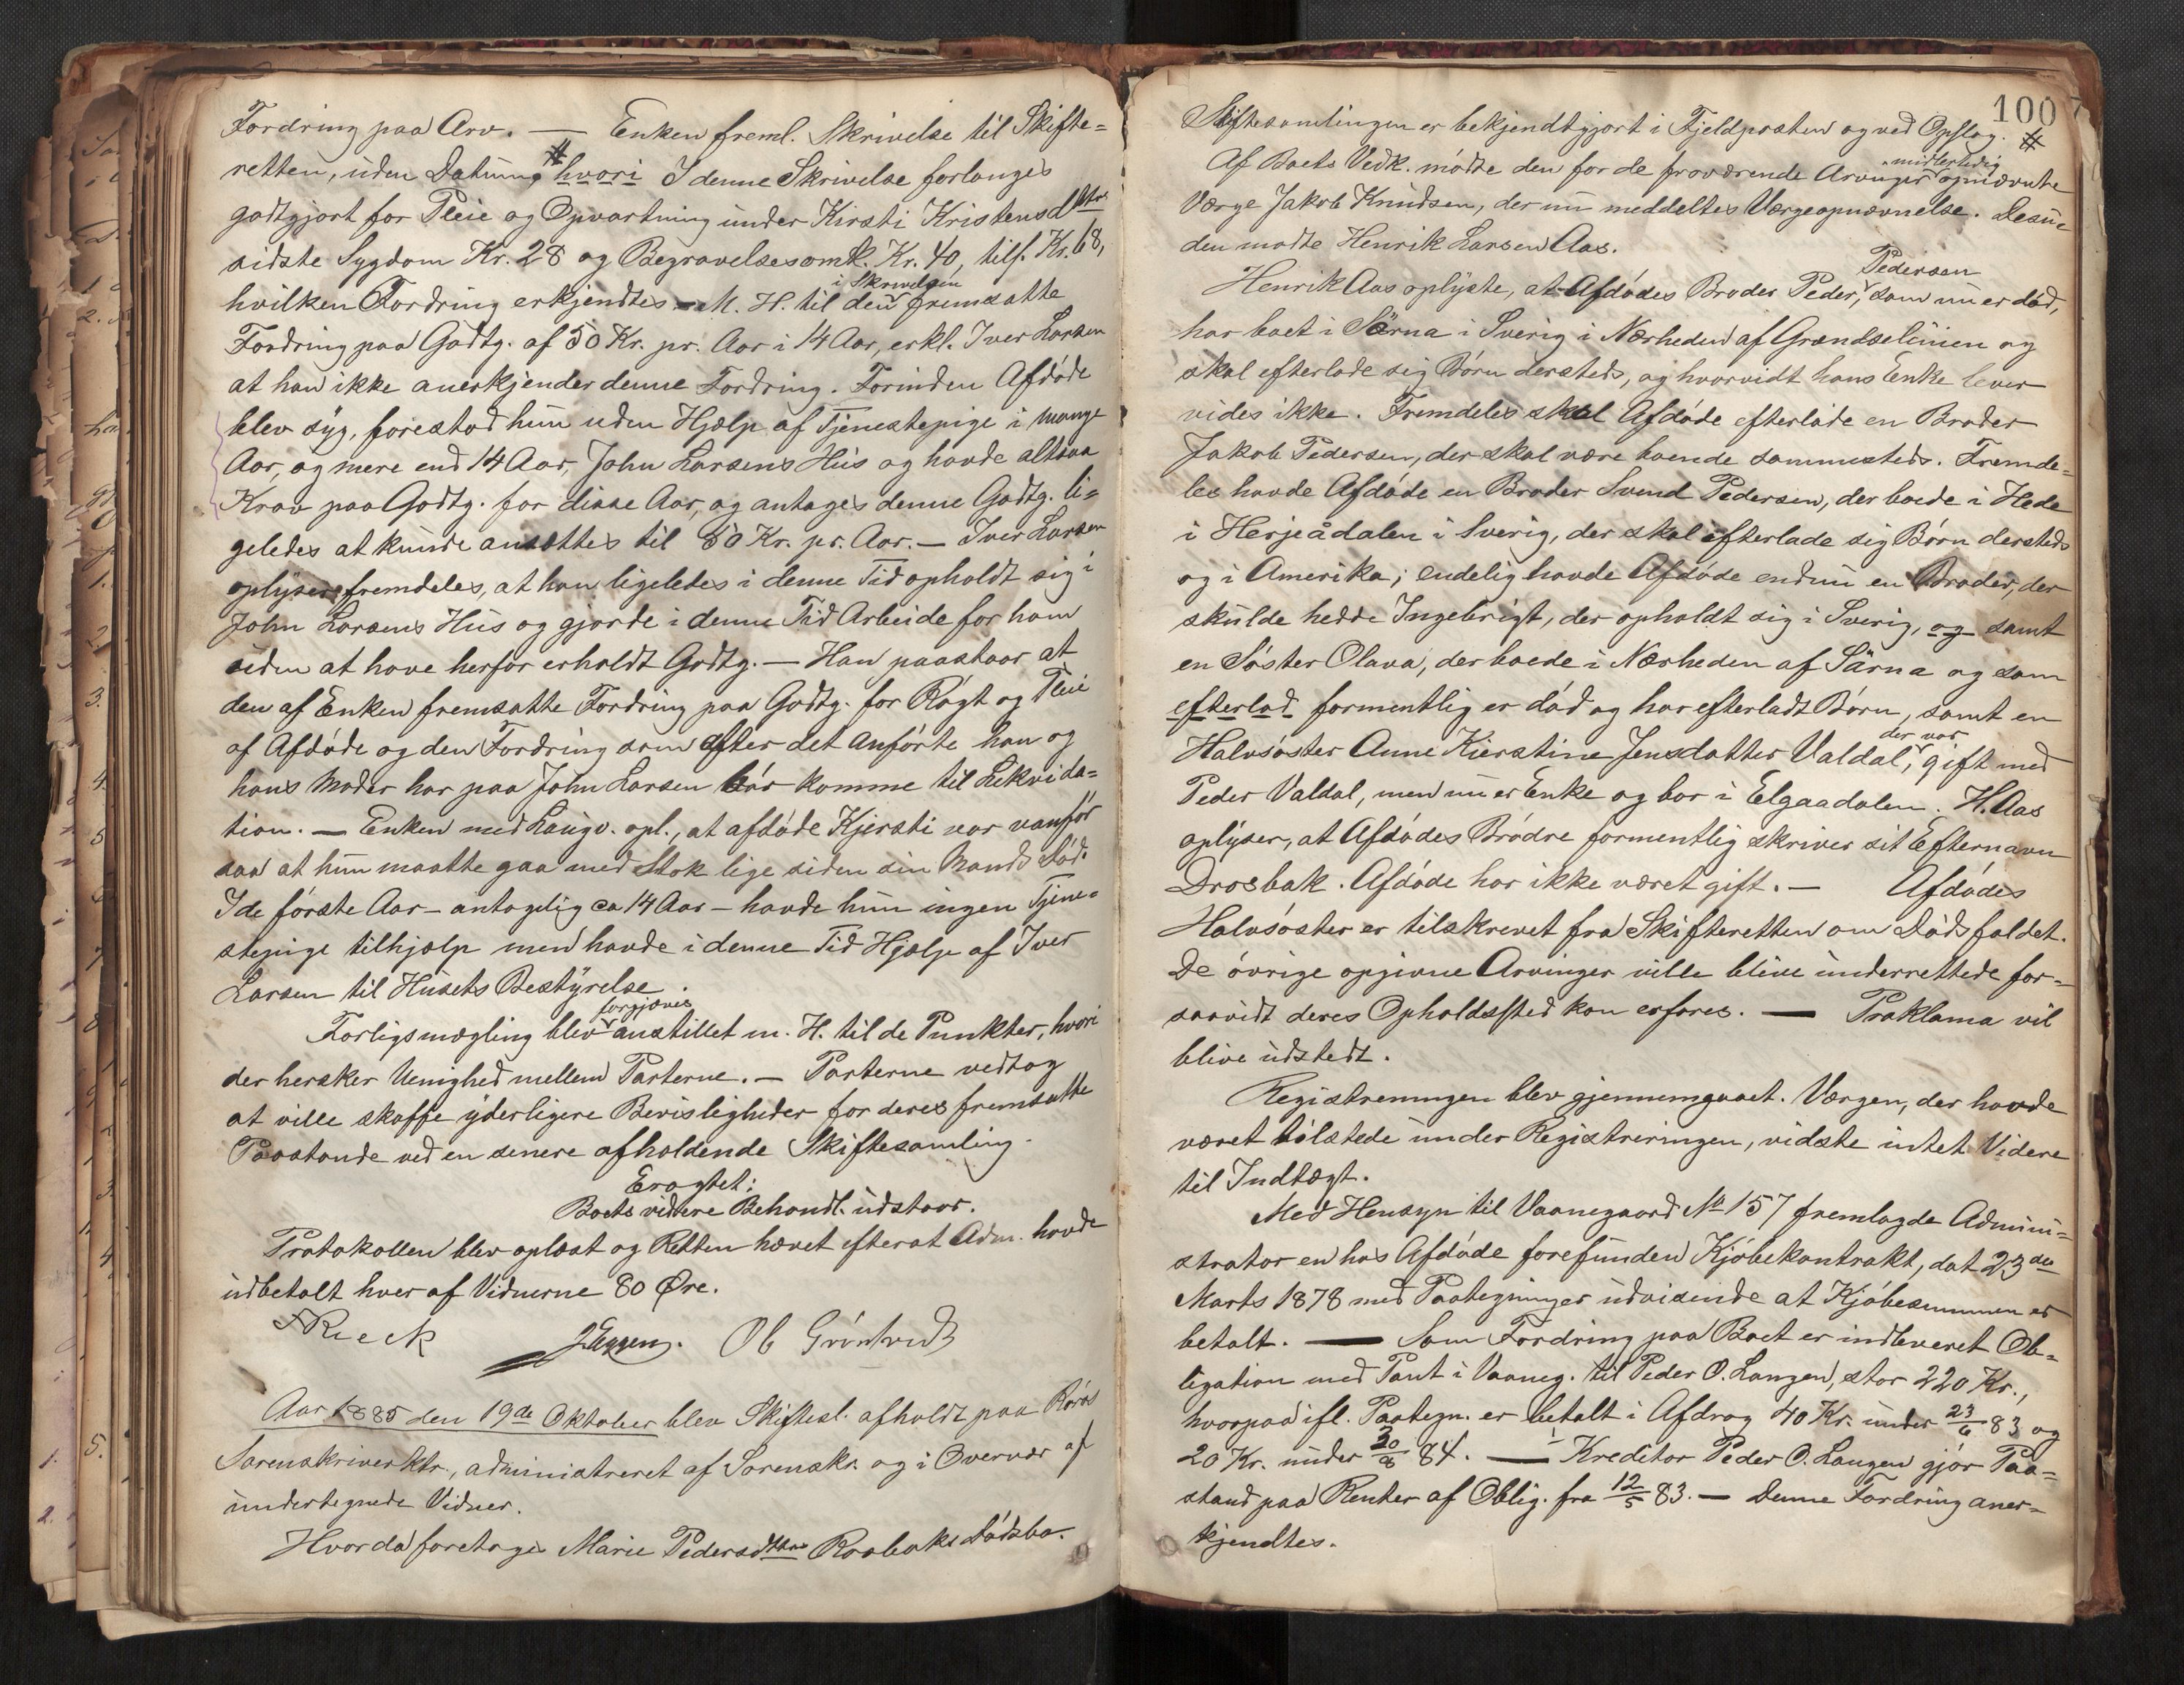 Fordring paa Arv. — Enken freml. Skrivelse til Skifte=
retten, uden Datum, # hvori I denne Skrivelse forlanges
godtgjort for Pleie og Opvartning under Kirsti Kristensdtrs
sidste Sygdom Kr. 28 og Begravelsesomk. Kr. 40, tils. Kr. 68,
hvilken Fordring erkjendtes. – M. H. til den i Skrivelsen fremsatte
Fordring paa Godtg. af 50 Kr. pr. Aar i 14 Aar, erkl. Iver Larsen
at han ikke anerkjender denne Fordring. Forinden Afdøde
blev syg, forestod hun uden Hjælp af Tjenestepige i mange
Aar, og mere end 14 Aar, John Larsens Hus og havde altsaa
Krav paa Godtg. for disse Aar, og antages denne Godtg. li=
geledes at kunde ansættes til 50 Kr. pr. Aar. — Iver Larsen
oplyser fremdeles, at han ligeledes i denne Tid opholdt sig i
John Larsens Hus og gjorde i denne Tid Arbeide for ham
uden at have herfor erholdt Godtg. — Han paastaar at
den af Enken fremsatte Fordring paa Godtg. for Røgt og Pleie
af Afdøde og den Fordring som efter det anførte han og
hans Moder har paa John Larsen bør komme til Likvida=
tion. — Enken med Laugv. opl., at afdøde Kjersti var vanfør
saa at hun maatte gaa med Stok lige siden sin Mands Død.
I de første Aar – antagelig ca 14 Aar – havde hun ingen Tjene=
stepige tilhjælp men havde i denne Tid Hjælp af Iver
Larsen til Husets Bestyrelse.
Forligsmægling blev forgjæves anstillet m. H. til de Punkter, hvori
der hersker Uenighed mellem Parterne. — Parterne vedtog
at ville skaffe yderligere Bevisligheder for deres fremsatte
Paastande ved en senere afholdende Skiftesamling.
Eragtet:
Boets videre Behandl. udstaar.
Protokollen blev oplæst og Retten hævet efterat Adm. havde
udbetalt hver af Vidnerne 80 Øre.
Rieck JEggen. Ob Grøntvedt
Aar 1885 den 19de Oktober blev Skiftesl. afholdt paa Røros
Sorenskriverktr., administreret af Sorenskr. og i Overvær af
undertegnede Vidner.
Hvorda foretoges Marie Pedersdtters Roobaks Dødsbo.
100
Skiftesamlingen er bekjendtgjort i Fjeldposten og ved Opslag. #
Af Boets Vedk. mødte den for de fraværende Arvinger midlertidig opnævnte
Værge Jakob Knudsen, der nu meddeltes Værgeopnævnelse. Desu=
den mødte Henrik Larsen Aas.
Henrik Aas oplyste, at Afdødes Broder Peder Pedersen, som nu er død,
har boet i Särna i Sverig i Nærheden af Grændselinien og
skal efterlade sig Børn dersteds, og hvorvidt hans Enke lever
vides ikke. Fremdeles skal Afdøde efterlade en Broder
Jakob Pedersen, der skal være boende sammesteds. Fremde=
les havde Afdøde en Broder Svend Pedersen, der boede i Hede
i Herjeådalen i Sverig, der skal efterlade sig Børn dersteds
og i Amerika; endelig havde Afdøde endnu en Broder, der
skulde hedde Ingebrigt, der opholdt sig i Sverig, og samt
en Søster Olava, der boede i Nærheden af Särna og som
efterlod formentlig er død og har efterladt Børn, samt en
Halvsøster Anne Kierstine Jensdatter Valdal, der var gift med
Peder Valdal, men nu er Enke og bor i Elgaadalen. H. Aas
oplyser, at Afdødes Brødre formentlig skriver sit Efternavn
Drosbak. Afdøde har ikke været gift. — Afdødes
Halvsøster er tilskrevet fra Skifteretten om Dødsfaldet.
De øvrige opgivne Arvinger ville blive underrettede for=
saavidt deres Opholdssted kan erfares. — Proklama vil
blive udstedt.
Registreringen blev gjennemgaaet. Værgen, der havde
været tilstede under Registreringen, vidste intet Videre
til Indtægt.
Med Hensyn til Vaanegaard No 157 fremlagde Admini=
strator en hos Afdøde forefunden Kjøbekontrakt, dat 23de
Marts 1878 med Paategninger udvisende at Kjøbesummen er
betalt. — Som Fordring paa Boet er indleveret Ob=
ligation med Pant i Vaaneg. til Peder O. Langen, stor 220 Kr.,
hvorpaa ifl. Paategn. er betalt i Afdrag 40 Kr. under 23/6 83 og
20 Kr. under 20/8 84. — Kreditor Peder O. Langen gjør Paa=
stand paa Renter af Oblig. fra 12/5 83. — Denne Fordring aner=
kjendtes.